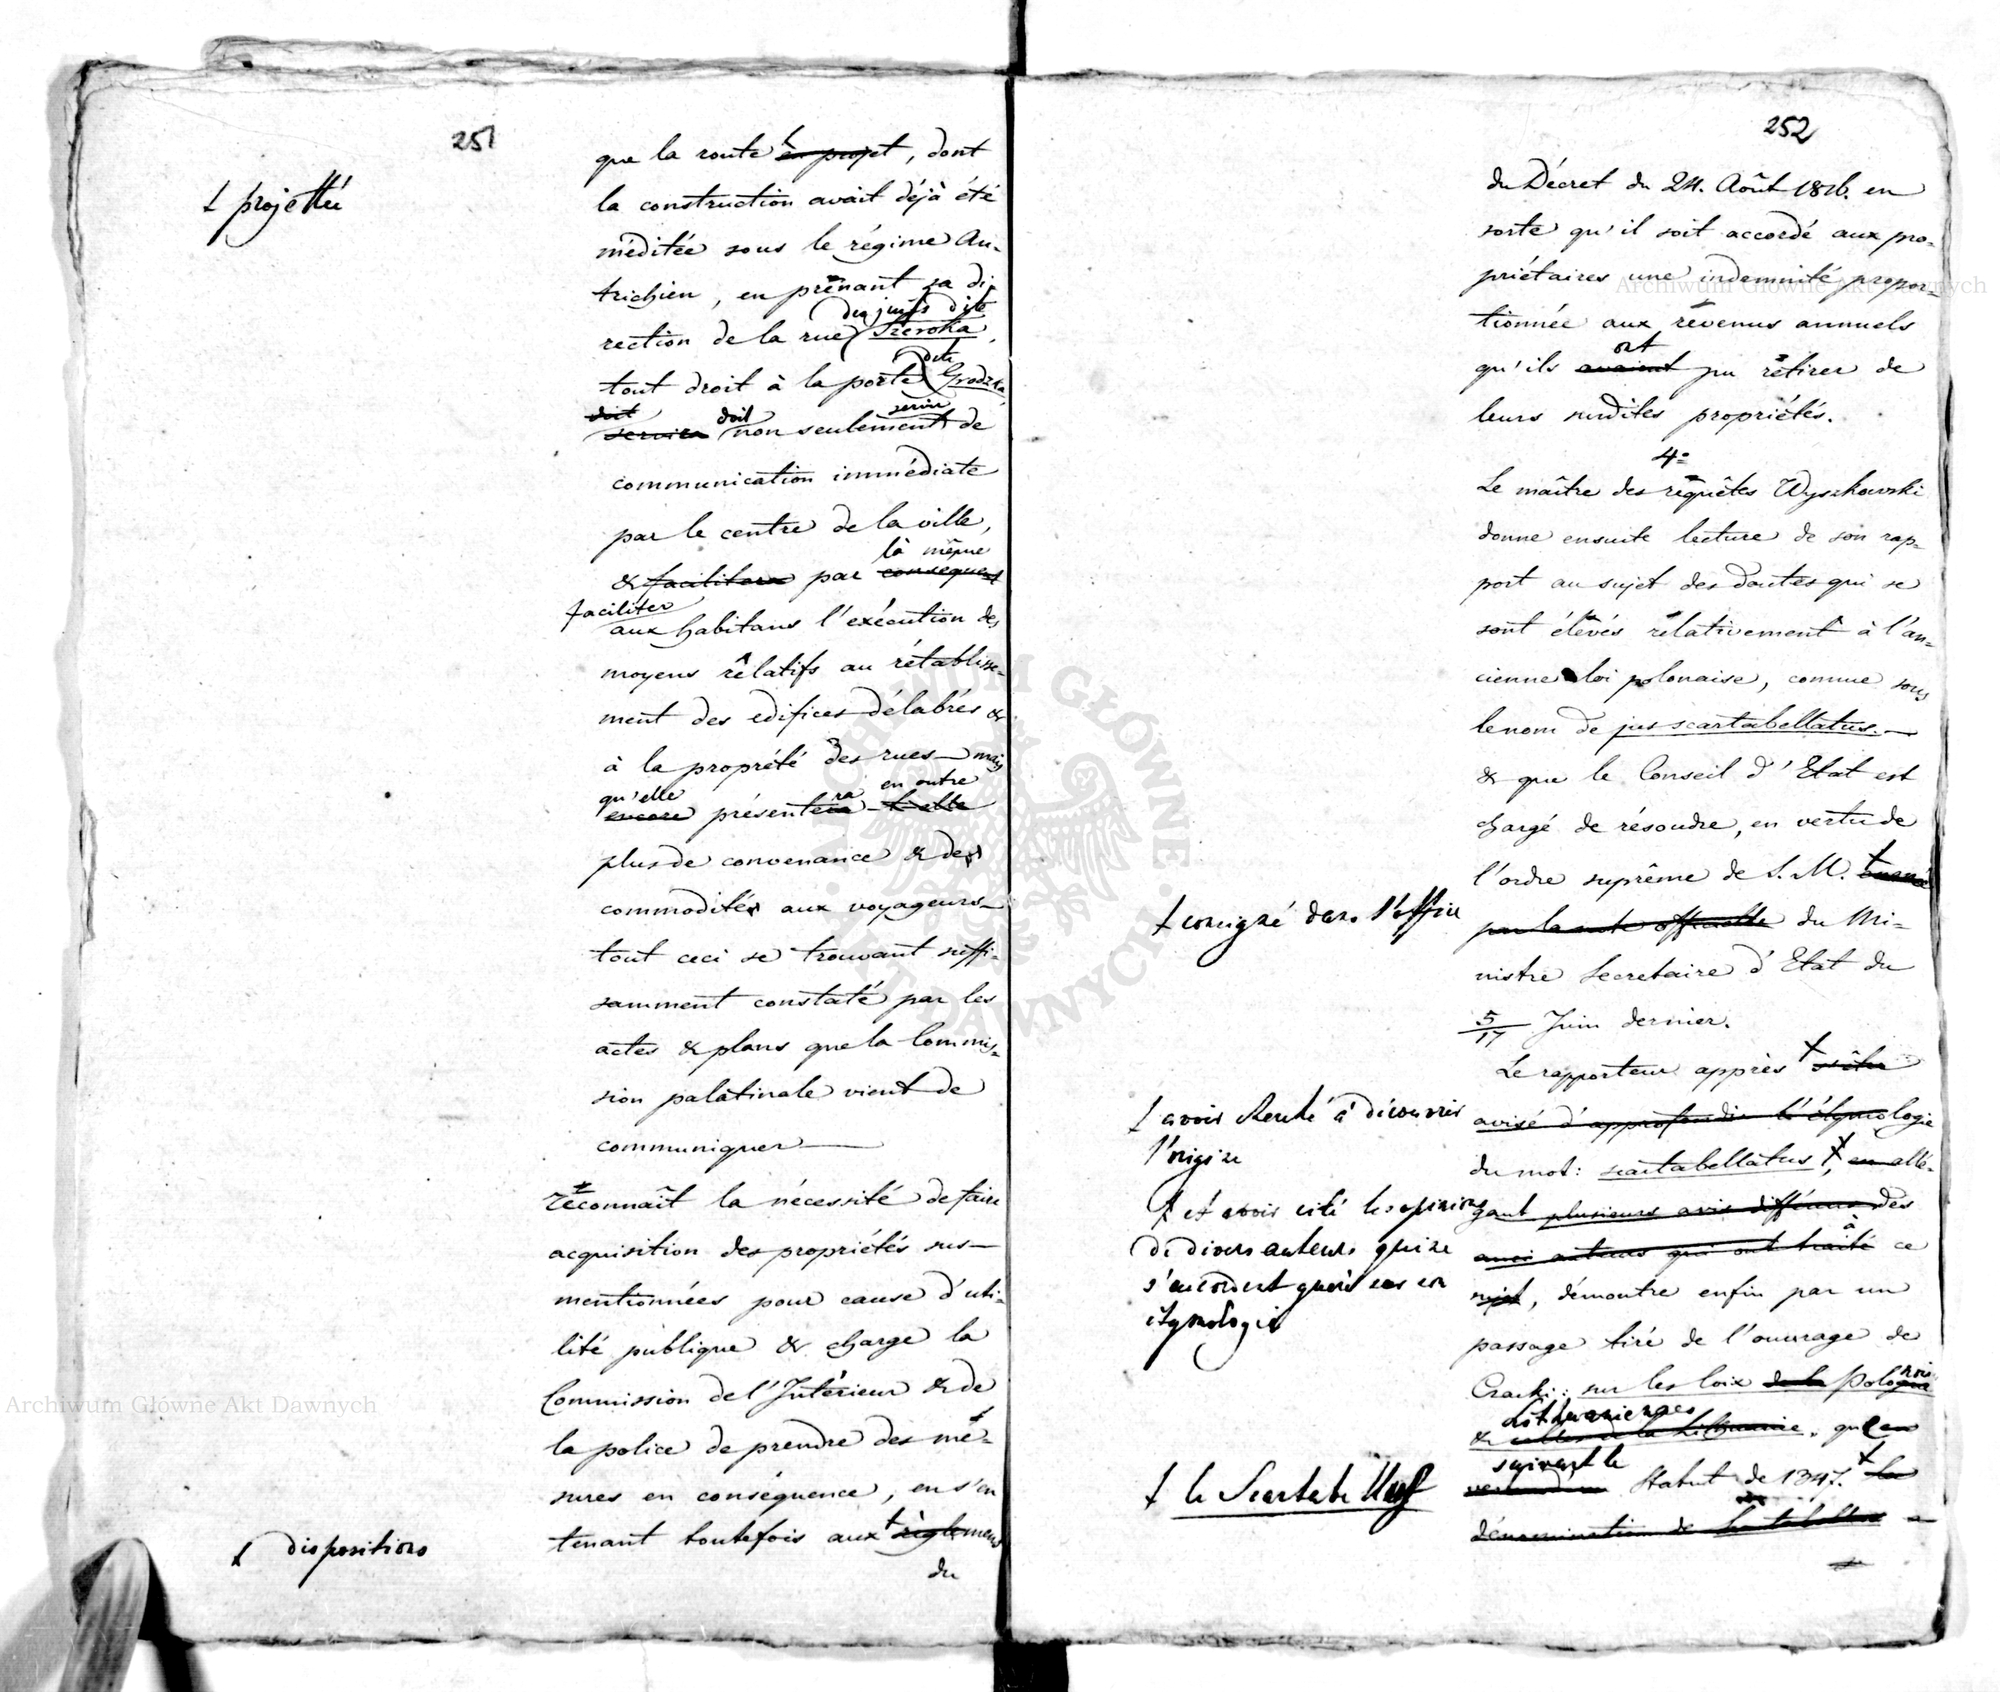 251
ƚ projettée
que la route ƚ en projet, dont
la construction avait déjà été
méditée sous le régime Au-
trichien, en prenant sa di-
des juifs dite
rection de la rue Szeroka,
dite
tout droit à la porte Grodzka
doit doit servir
servira non seulement de
communication immédiate
par le centre de la ville,
là même
& facilitera par conséquent
faciliter
aux habitans l'exécution des
moyens rélatifs au rétablisse-
ment des edifices délabrés &
à la propriété des rues mais
qu'elle ra en outre
encore présentera-t-elle
plus de convenance & de
commodités aux voyageurs
tout ceci se trouvant suffi-
samment constaté par les
actes & plans que la Commis-
sion palatinale vient de
communiquer
réconnaît la nécessité de faire
acquisition des propriétés sus-
mentionnées pour cause d'uti-
lité publique & charge la
Commission de l'Intérieur & de
la police de prendre des mé-
sures en conséquence, en s'en
tenant toutefois aux ƚ règlemens
ƚ dispositions
du
252
du Décret du 24. Août 1816. en
sorte qu'il soit accordé aux pro-
priétaires une indemnité propor-
tionnée aux révenus annuels
ont
qu'ils avaient pu rétirer de
leurs susdites propriétés.
4º
Le maître des réquêtes Wyszkowski
donne ensuite lecture de son rap-
port au sujet des doutes qui se
sont élévés rélativement à l'an-
cienne loi polonaise, connue sous
le nom de jus scartabellatus.
& que le Conseil d'Etat est
chargé de résoudre, en vertu de
l'ordre suprême de S. M. ƚ émané
ƚ consigné dans l'office
par la note officielle du Mi-
nistre Secretaire d'Etat du
5/17 Juin dernier.
Le rapporteur apprès ƚ s'être
ƚ avoir cherché à découvrir
l'origine
avisé d'approfondir l'étymologie
du mot: scartabellatus, ƚ en allé-
ƚ et avoir cité les opinions
de divers auteurs qui ne
s'accordent guères sur son
étymologie
gant plusieurs avis différens des
à
auteurs qui ont traité ce
sujet, démontre enfin par un
passage tiré de l'ouvrage de
Czacki: sur les loix de la Pologne
noises
Lithuaniennes
& celles de la Lithuanie, qu'en
suivant le
vertu du Statut de 1347. ƚ la
ƚ le Scartabellat
dénomination de